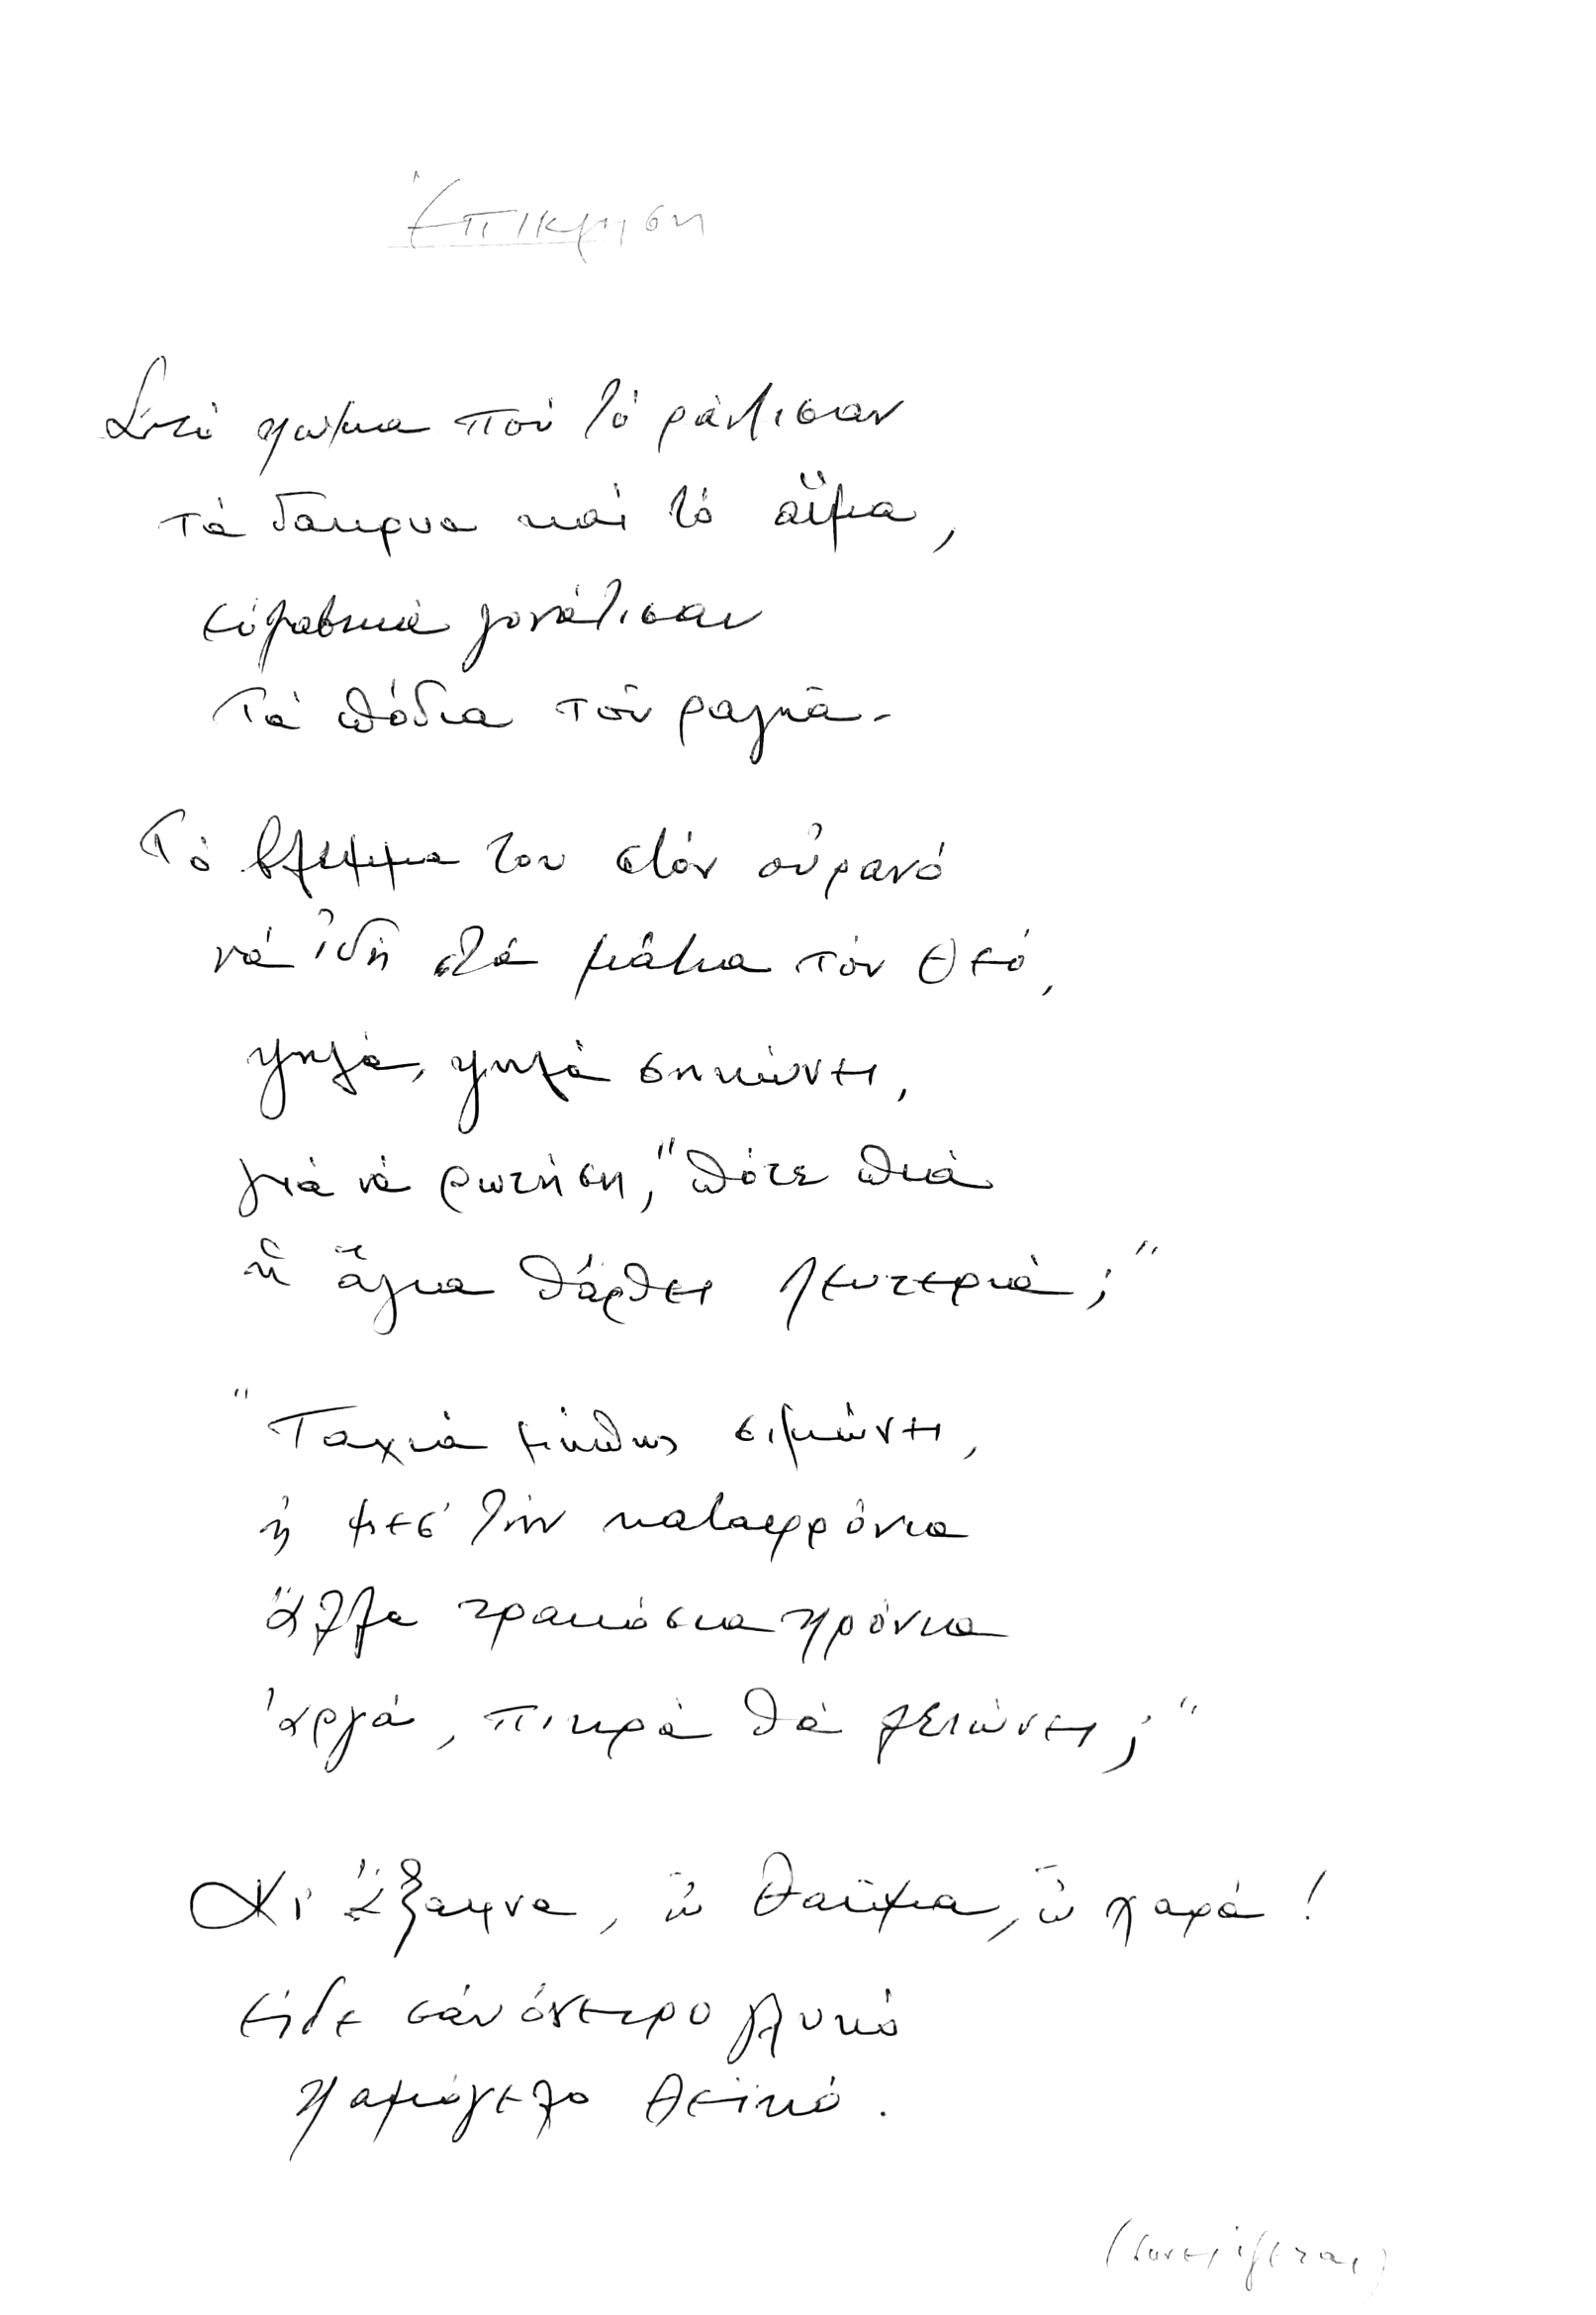 Ἐπίκληση
Στό χῶμα πού τό ράντισαν
τά δάκρυα καί τό αἷμα,
εὐλαβικά γονάτισαν
τά πόδια τοῦ ραγιᾶ.
Τό βλέμμα του στόν οὐρανό
νά ἰδῆ στά μάτια τόν Θεό,
ψηλά, ψηλά σηκώνει,
γιά νά ρωτήση, "πότε πιά
ἡ ἅγια θἄρθει λευτεριά;"
"Ταχιά μήπως σιμώνει,
ἤ μεσ' τήν καταφρόνια
ἄλλα τρακόσια χρόνια
ἀργά, πικρά θά λειώνει;"
Κι' ἔξαφνα, ὤ θαῦμα, ὤ χαρά!
εἶδε σάν ὄνειρο γλυκό
χαμόγελο θεϊκό.
(συνεχίζεται)